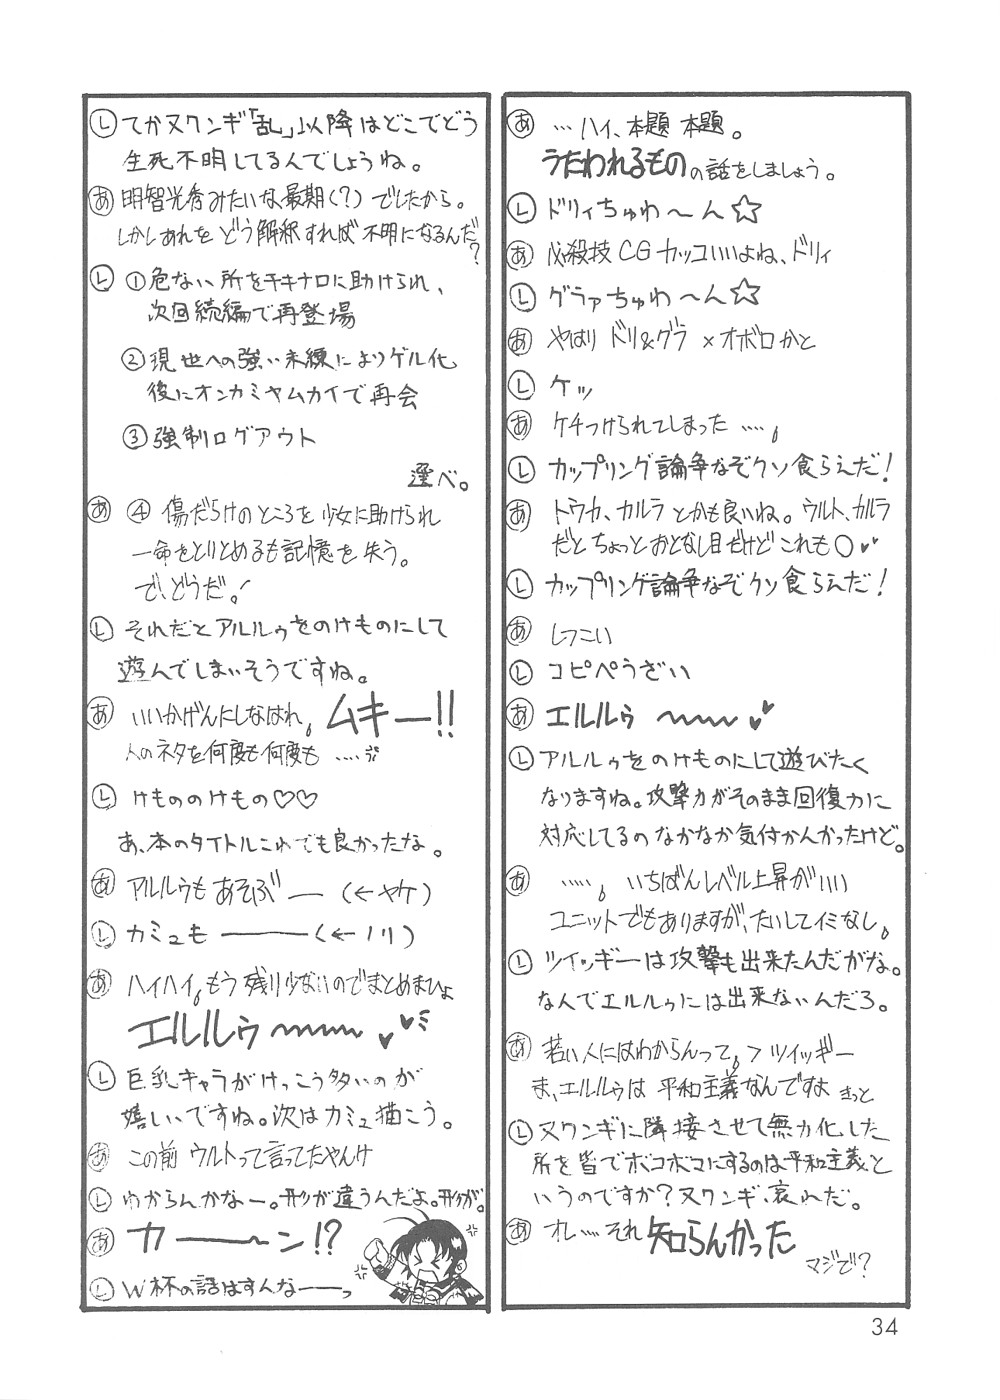 あ …ハイ、本題 本題。
うたわれるものの話をしましょう。
L ドリィちゅわ〜ん☆
あ 必殺技CGカッコいいよね、ドリィ
L グラァちゅわ〜ん☆
あ やはり ドリ&グラ×オボロかと
L ケッ
あ ケチつけられてしまった ……。
L カップリング論争なぞクソ食らえだ!
あ トウカ、カルラ とかも良いね。ウルト、カルラ
だとちょっとおとなし目だけどこれも○♥♥
L カップリング論争なぞクソ食らえだ!
あ しつこい
L コピペうざい
あ エルルゥ 〜〜〜♥♥
L アルルゥをのけものにして遊びたく
なりますね。攻撃力がそのまま回復力に
対応してるのなかなか気付かんかったけど。
あ ……。いちばんレベル上昇がいい
ユニットでもありますが、たいしてイミなし。
L ツイッギーは攻撃も出来たんだがな。
なんでエルルゥには出来ないんだろ。
あ 若い人にはわからんって。>ツイッギー
ま、エルルゥは 平和主義なんですよ きっと
L ヌワンギに隣接させて無力化した
所を皆でボコボコにするのは平和主義と
いうのですか?ヌワンギ、哀れだ。
あ オレ…それ知らんかった
マジで?
L てかヌワンギ「乱」以降はどこでどう
生死不明してるんでしょうね。
あ 明智光秀みたいな最期(?)でしたから。
しかしあれをどう解釈すれば不明になるんだ?
L ①危ない所をチキナロに助けられ、
次回続編で再登場
②現世への強い未練によりゲル化
後にオンカミヤムカイで再会
③強制ログアウト
選べ。
あ ④ 傷だらけのところを少女に助けられ
一命をとりとめるも記憶を失う。
で、どうだ!
L それだとアルルゥをのけものにして
遊んでしまいそうですね。
あ いいかげんにしなはれ。ムキー!!
人のネタを何度も何度も ……
L けもののけもの♡♡
あ、本のタイトルこれでも良かったな。
あ アルルゥもあそぶ― (←ヤケ)
L カミュも ―――(←ノリ)
あ ハイハイ。もう残り少ないのでまとめまひょ
エルルゥ〜〜〜♥♥
L 巨乳キャラがけっこう多いのが
嬉しいですね。次はカミュ描こう。
あ この前 ウルトって言ってたやんけ
L わからんかなー。形が違うんだよ。形が。
あ カ――〜ン!?
L W杯の話はすんな――っ
34